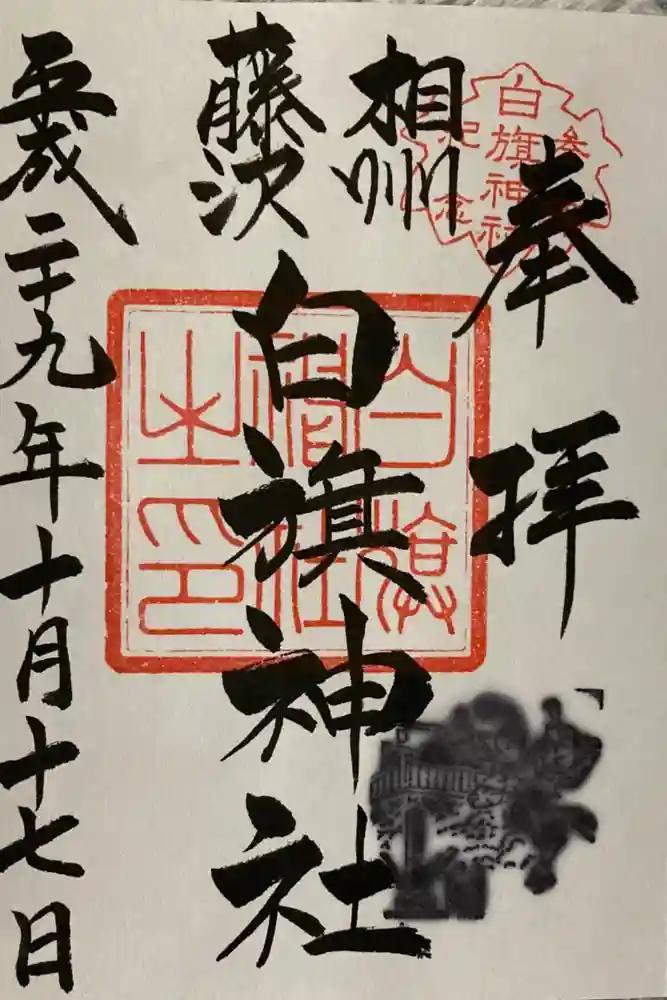 奉拝
白旗神社
参拝
記念
相州
藤沢
白旗神社
白旗
神社
之印
平成二十九年十月十七日